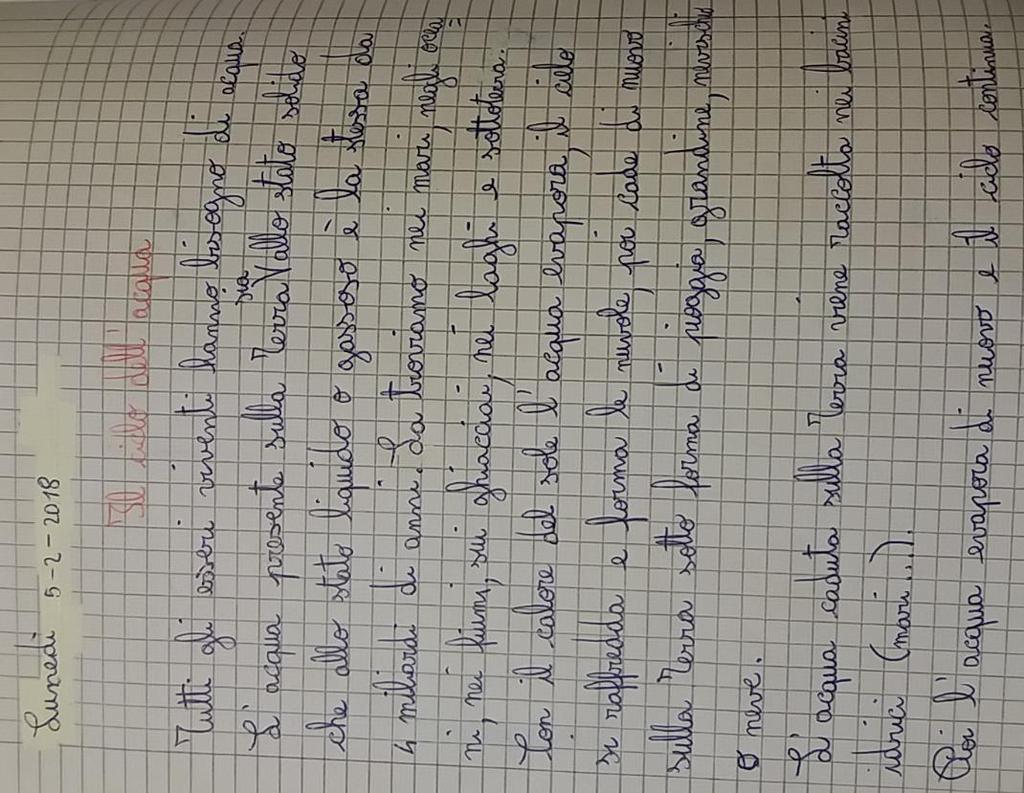 Lunedì 5-2-2018
Il ciclo dell'acqua
Tutti gli esseri viventi hanno bisogno di acqua.
L'acqua presente sulla Terra sia allo stato solido
che allo stato liquido o gassoso è la stessa da
4 miliardi di anni. La troviamo nei mari, negli ocea=
ni, nei fiumi, sui ghiacciai, nei laghi e sottoterra.
Con il calore del sole l'acqua evapora, il cielo
si raffredda e forma le nuvole, poi cade di nuovo
sulla Terra sotto forma di pioggia, grandine,
o neve.
L'acqua caduta sulla Terra viene raccolta nei bacini
idrici (mari...).
Poi l'acqua evapora di nuovo e il ciclo continua.